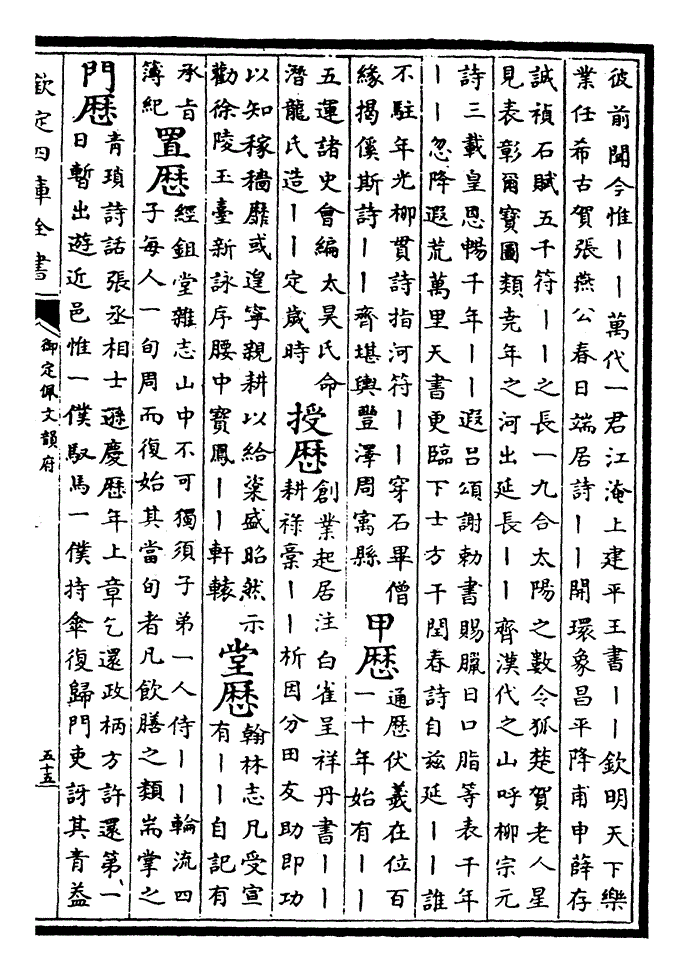 彼前聞今惟｜｜萬代一君江淹上建平王書｜｜欽明天下樂
業任希古賀張燕公春日端居詩｜｜開環象昌平降甫申薛存
誠禎石賦五千符｜｜之長一九合太陽之數令狐楚賀老人星
見表彰爾寶圖類堯年之河出延長｜｜齊漢代之山呼柳宗元
詩三載皇恩暢千年｜｜遐呂頌謝勅書賜臘日口脂等表千年
｜｜忽降遐荒萬里天書更臨下士方干閏春詩自兹延｜｜誰
不駐年光柳貫詩指河符｜｜穿石畢僧
緣揭傒斯詩｜｜齊堪輿豐澤周寓縣
甲歴
通歴伏羲在位百
一十年始有｜｜
五運諸史會編太昊氏命
潛龍氏造｜｜定歲時
授歴
創業起居注白雀呈祥丹書｜｜
耕祿槀｜｜析因分田友助即功
以知稼穡靡或遑寧親耕以給粢盛昭然示
勸徐陵玉臺新詠序腰中寶鳳｜｜軒轅
堂歴
翰林志凡受宣
有｜｜自記有
承旨
簿紀
置歴
經鉏堂雜志山中不可獨須子弟一人侍｜｜輪流四
子每人一旬周而復始其當旬者凡飲膳之類耑掌之
門歴
青瑣詩話張丞相士遜慶歴年上章乞還政柄方許還第、一
日暫出遊近邑惟一僕馭馬一僕持傘復歸門吏訝其青蓋
欽定四庫全書
御定佩文韻府
五十五